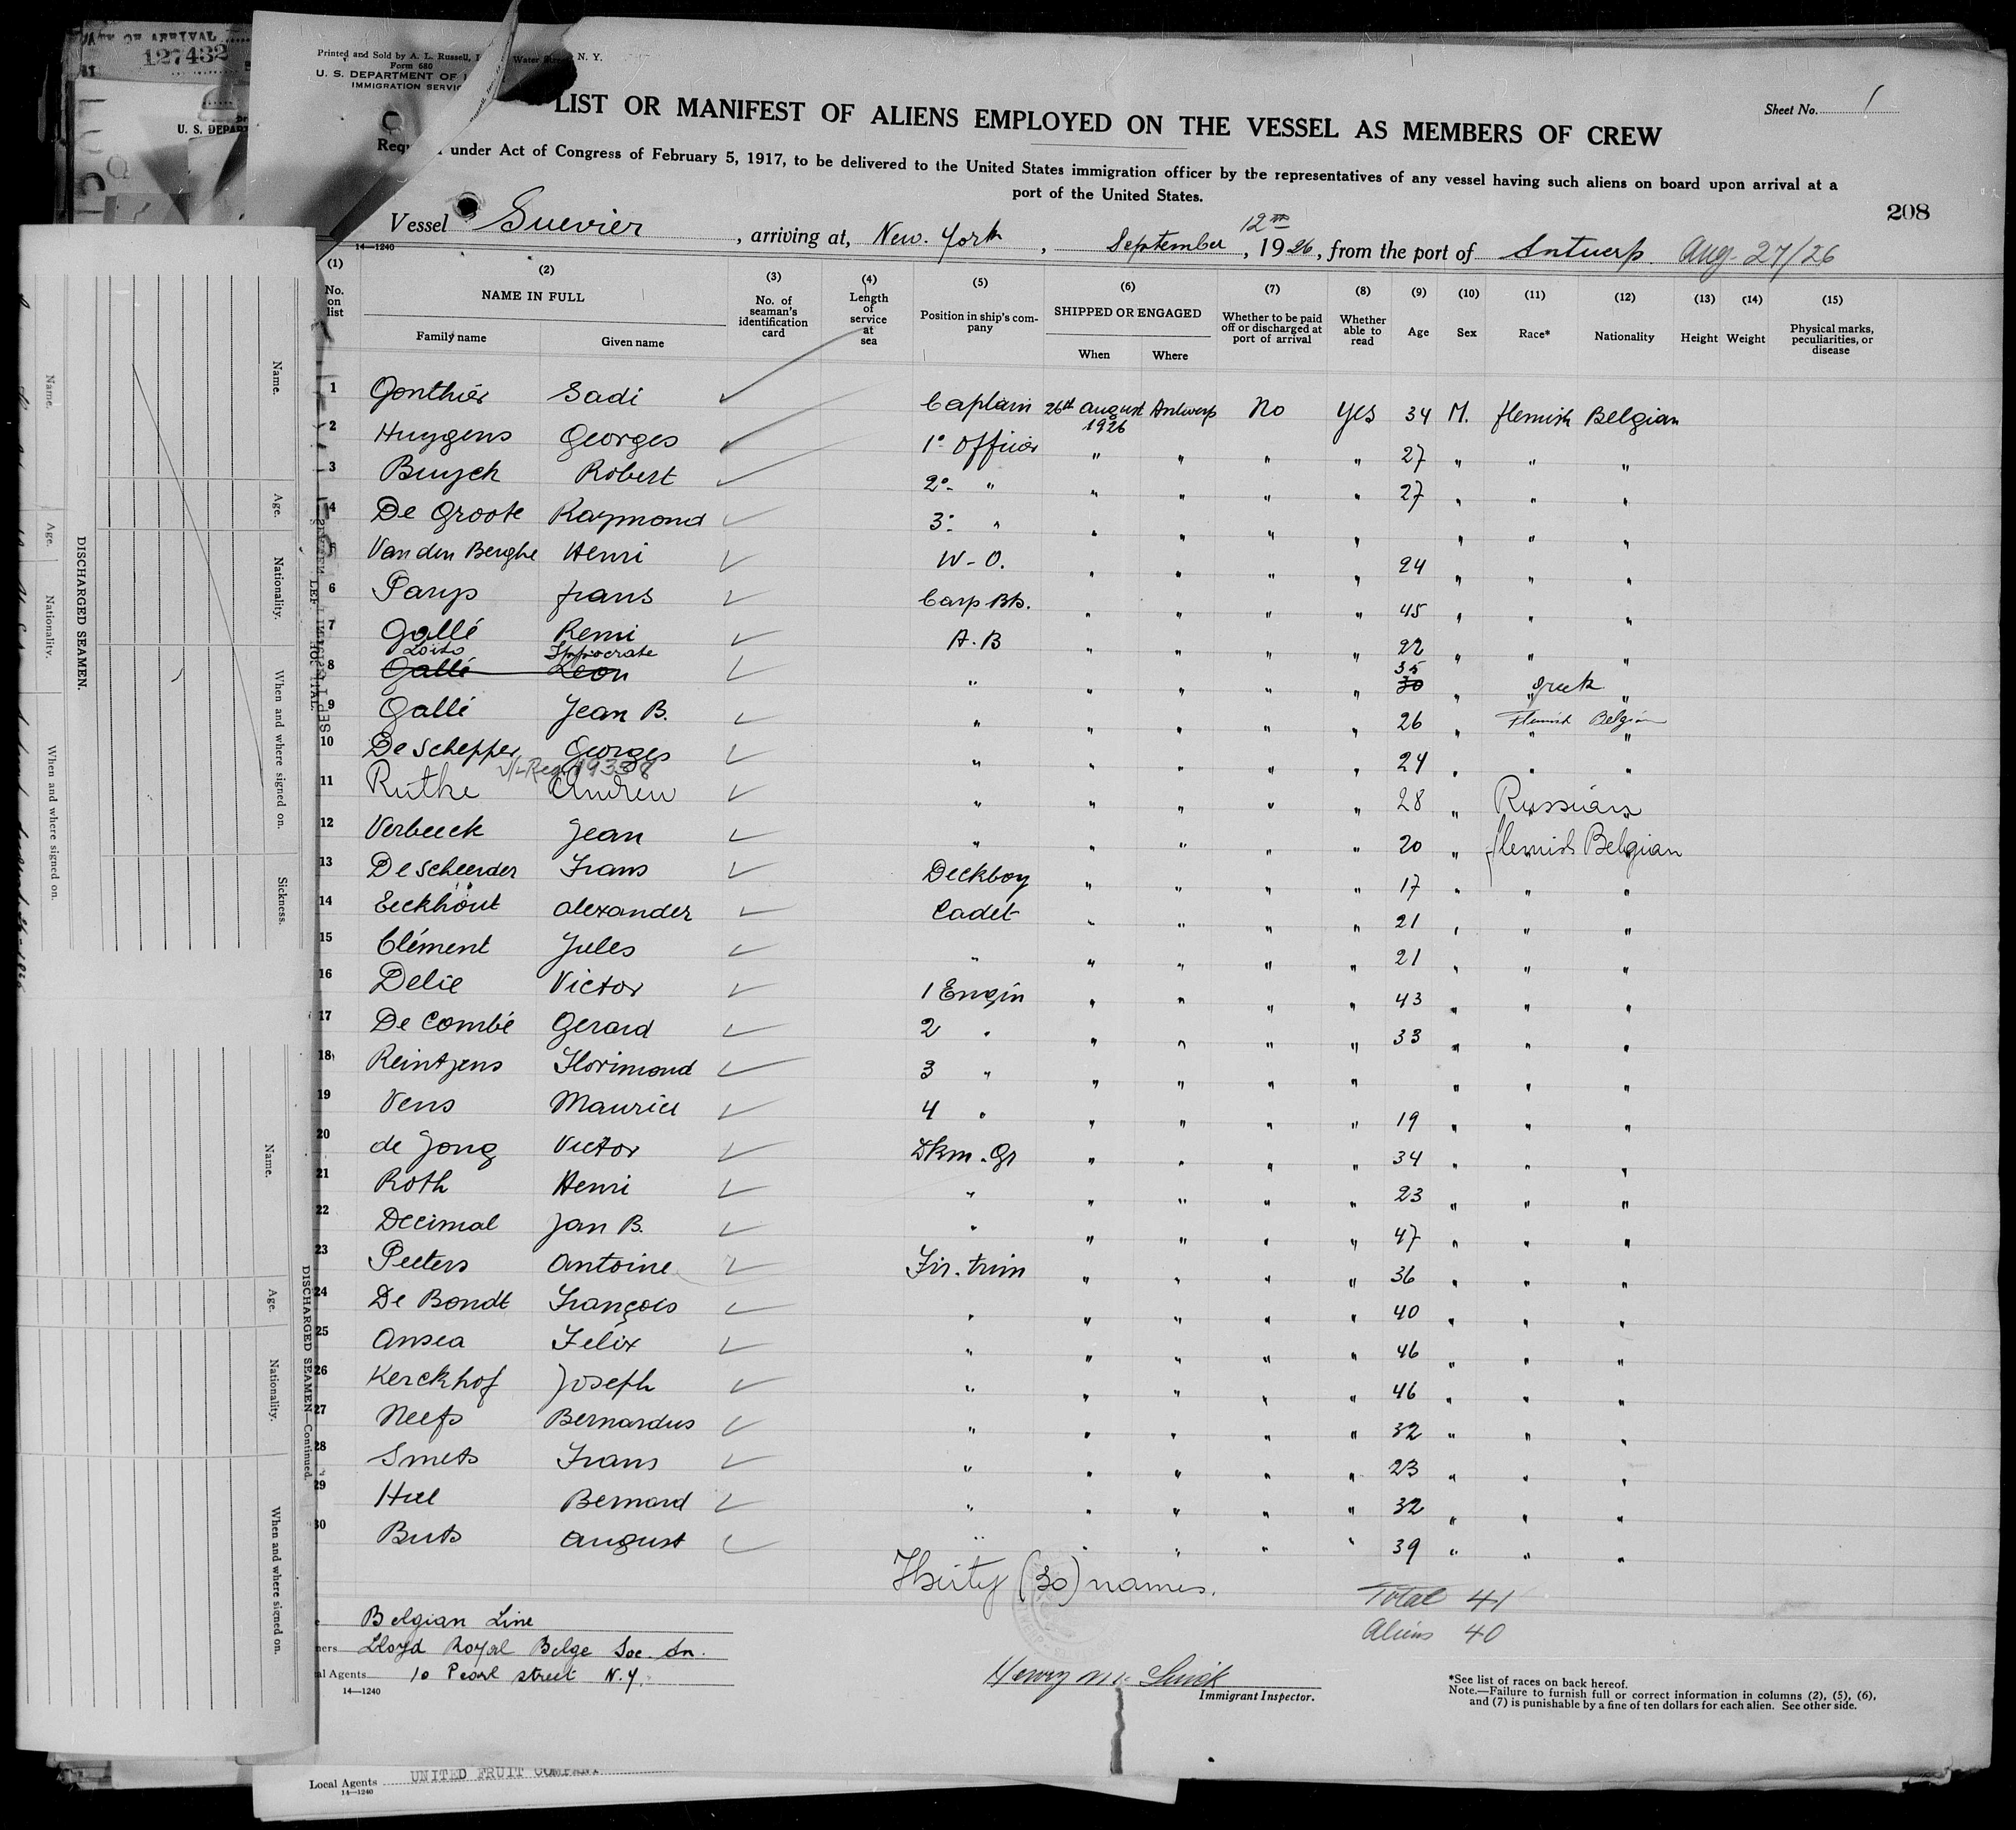 DATE OF ARRIVAL
127432
U. S. DEPAR
Printed and Sold by A. L. Russell, Water Street, N. Y.
Form 680
U. S. DEPARTMENT OF
IMMIGRATION SERVIC
Sheet No. 1
LIST OR MANIFEST OF ALIENS EMPLOYED ON THE VESSEL AS MEMBERS OF CREW
under Act of Congress of February 5, 1917, to be delivered to the United States immigration officer by the representatives of any vessel having such aliens on board upon arrival at a
port of the United States.
208
Vessel Suevier, arriving at, New. York, September 12th, 1926, from the port of Antwerp. Aug. 27/26
14—1240
(1) (2) (3) (4) (5) (6) (7) (8) (9) (10) (11) (12) (13) (14) (15)
No. on list NAME IN FULL Family name Given name No. of seaman's identification card Length of service at sea Position in ship's company SHIPPED OR ENGAGED When Where Whether to be paid off or discharged at port of arrival Whether able to read Age Sex Race* Nationality Height Weight Physical marks, peculiarities, or disease
1 Gonthier Sadi ✓ Captain 26th august 1926 Antwerp No Yes 34 M. flemish Belgian
2 Huygens Georges ✓ 1° Officier " " " " 27 " " "
3 Buych Robert ✓ 2° " " " " " 27 " " "
4 De Groote Raymond ✓ 3° " " " " " " " "
5 Van den Berghe Henri ✓ W-O. " " " " 24 " " "
6 Parys frans ✓ Carp Bts. " " " " 45 " " "
7 Gallé Remi ✓ A.B " " " " 22 " " "
Loïto Ippocrate 35
8 Gallé Leon ✓ " " " " " 30 " greek "
9 Gallé Jean B. ✓ " " " " " 26 " Flemish Belgian
10 De Schepper Georges ✓ " " " " " 24 " " "
Reg. 19338
11 Ruthe Andrew ✓ " " " " " 28 " Russian "
12 Verbeeck Jean ✓ " " " " " 20 " flemish Belgian
13 De Scheerder Frans ✓ Deckboy " " " " 17 " " "
14 Eeckhout alexander ✓ Cadet " " " " 21 " " "
15 Clément Jules ✓ " " " " " 21 " " "
16 Delie Victor ✓ 1 Engin " " " " 43 " " "
17 De Combé Gerard ✓ 2 " " " " " 33 " " "
18 Reintjens Florimond ✓ 3 " " " " " " " "
19 Vens Maurice ✓ 4 " " " " " 19 " " "
20 de Jong Victor ✓ Dkm. Gr " " " " 34 " " "
21 Roth Henri ✓ " " " " " 23 " " "
22 Decimal Jan B. ✓ " " " " " 47 " " "
23 Peeters Antoine ✓ Fir. trim " " " " 36 " " "
24 De Bondt François ✓ " " " " " 40 " " "
25 Ansea Felix ✓ " " " " " 46 " " "
26 Kerckhof Joseph ✓ " " " " " 46 " " "
27 Neefs Bernardus ✓ " " " " " 32 " " "
28 Smets Frans ✓ " " " " " 23 " " "
29 Hul Bernard ✓ " " " " " 32 " " "
30 Buts august ✓ " " " " " 39 " " "
Thirty (30) names.
Total 41
Aliens 40
Belgian Line
Lloyd Royal Belge Soc. An.
al Agents 10 Pearl street N.Y.
14—1240
Henry M.
Immigrant Inspector.
*See list of races on back hereof.
Note.—Failure to furnish full or correct information in columns (2), (5), (6),
and (7) is punishable by a fine of ten dollars for each alien. See other side.
Local Agents UNITED FRUIT COMPANY
14—1240
DISCHARGED SEAMEN.
Name. Age. Nationality. When and where signed on.
Name. Age. Nationality. When and where signed on. Sickness.
DISCHARGED SEAMEN—Continued.
Name. Age. Nationality. When and where signed on.